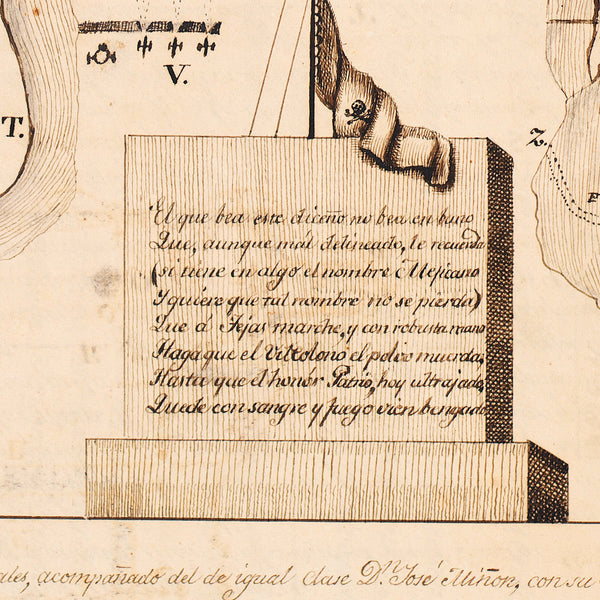 V.
T.
Z.
E
El que bea este diceño no bea en bano
Que, aunque mál delineado, le recuerda
(si tiene en algo el nombre Mejicano
Y quiere que tal nombre no se pierda)
Que á Tejas marche, y con robusta mano
Haga que el Vil Colono el polvo muerda,
Hasta que el honór Patrio, hoy ultrajado,
Quede con sangre y fuego vien bengado
ales, acompañado del de igual clase Dn. José Miñon, con su